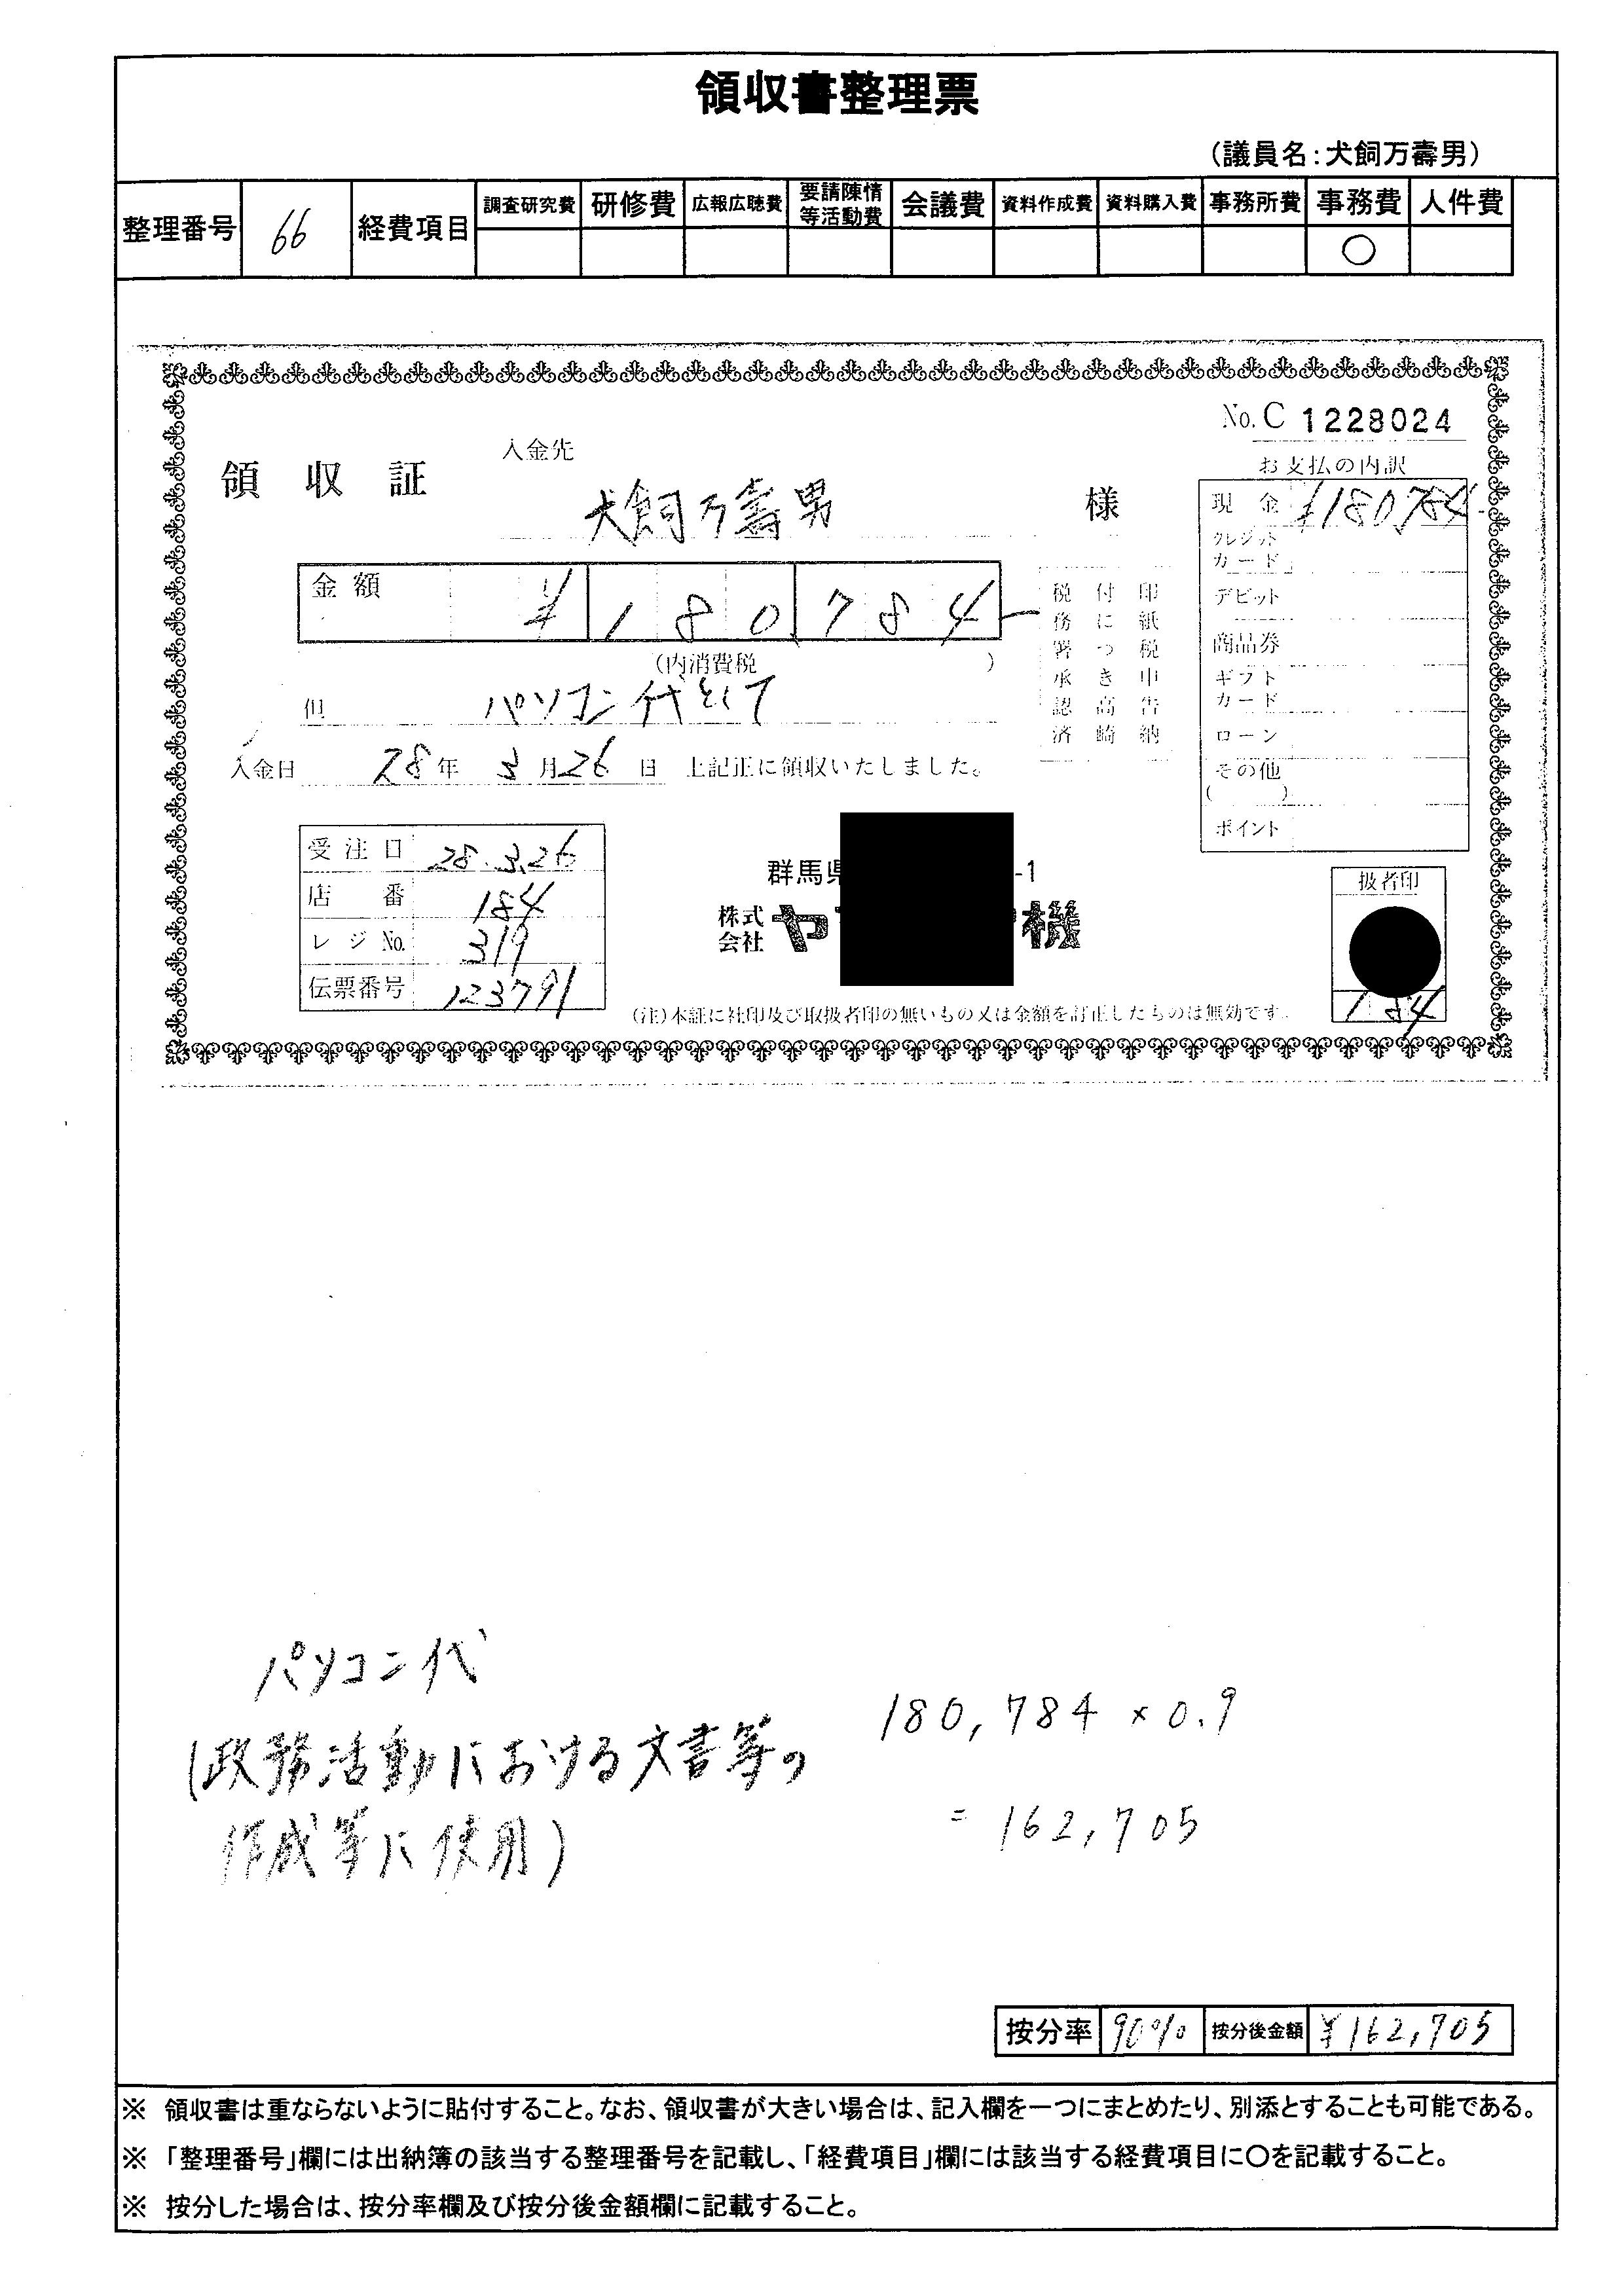 領収書整理票
（議員名：犬飼万壽男）
整理番号 66 経費項目 調査研究費 研修費 広報広聴費 要請陳情等活動費 会議費 資料作成費 資料購入費 事務所費 事務費 人件費
○
No. C 1228024
領収証 入金先
犬飼万壽男 様
金額 ¥180784-
(内消費税 )
但 パソコン代として
入金日 28年 3月26日 上記正に領収いたしました。
印紙税申告納
付につき高崎
税務署承認済
お支払の内訳
現金 ¥180,784-
クレジットカード
デビット
商品券
ギフトカード
ローン
その他
( )
ポイント
受注日 28.3.26
店番 184
レジNo. 319
伝票番号 123791
群馬県 -1
株式会社 ヤ 機
扱者印
184
(注)本証に社印及び取扱者印の無いもの又は金額を訂正したものは無効です。
パソコン代
(政務活動における文書等の
作成等に使用)
180,784 × 0.9
= 162,705
按分率 90% 按分後金額 ¥162,705
※ 領収書は重ならないように貼付すること。なお、領収書が大きい場合は、記入欄を一つにまとめたり、別添とすることも可能である。
※ 「整理番号」欄には出納簿の該当する整理番号を記載し、「経費項目」欄には該当する経費項目に○を記載すること。
※ 按分した場合は、按分率欄及び按分後金額欄に記載すること。